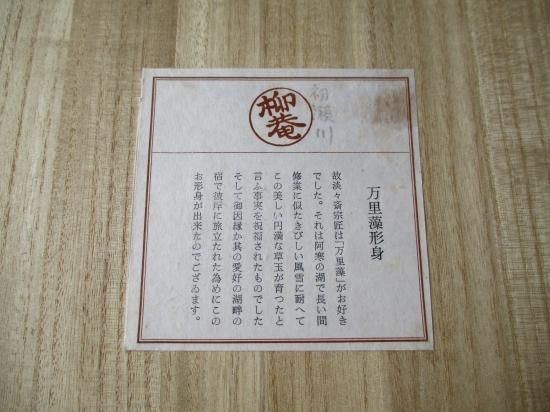 柳菴
初瀬川
万里藻形身
故淡々斎宗匠は「万里藻」がお好き
でした。それは阿寒の湖で長い間
修業に似たきびしい風雪に耐へて
この美しい円満な草玉が育つたと
言ふ事実を祝福されたものでした
そして御因縁か其の愛好の湖畔の
宿で彼岸に旅立たれた為めにこの
お形身が出来たのでございます。